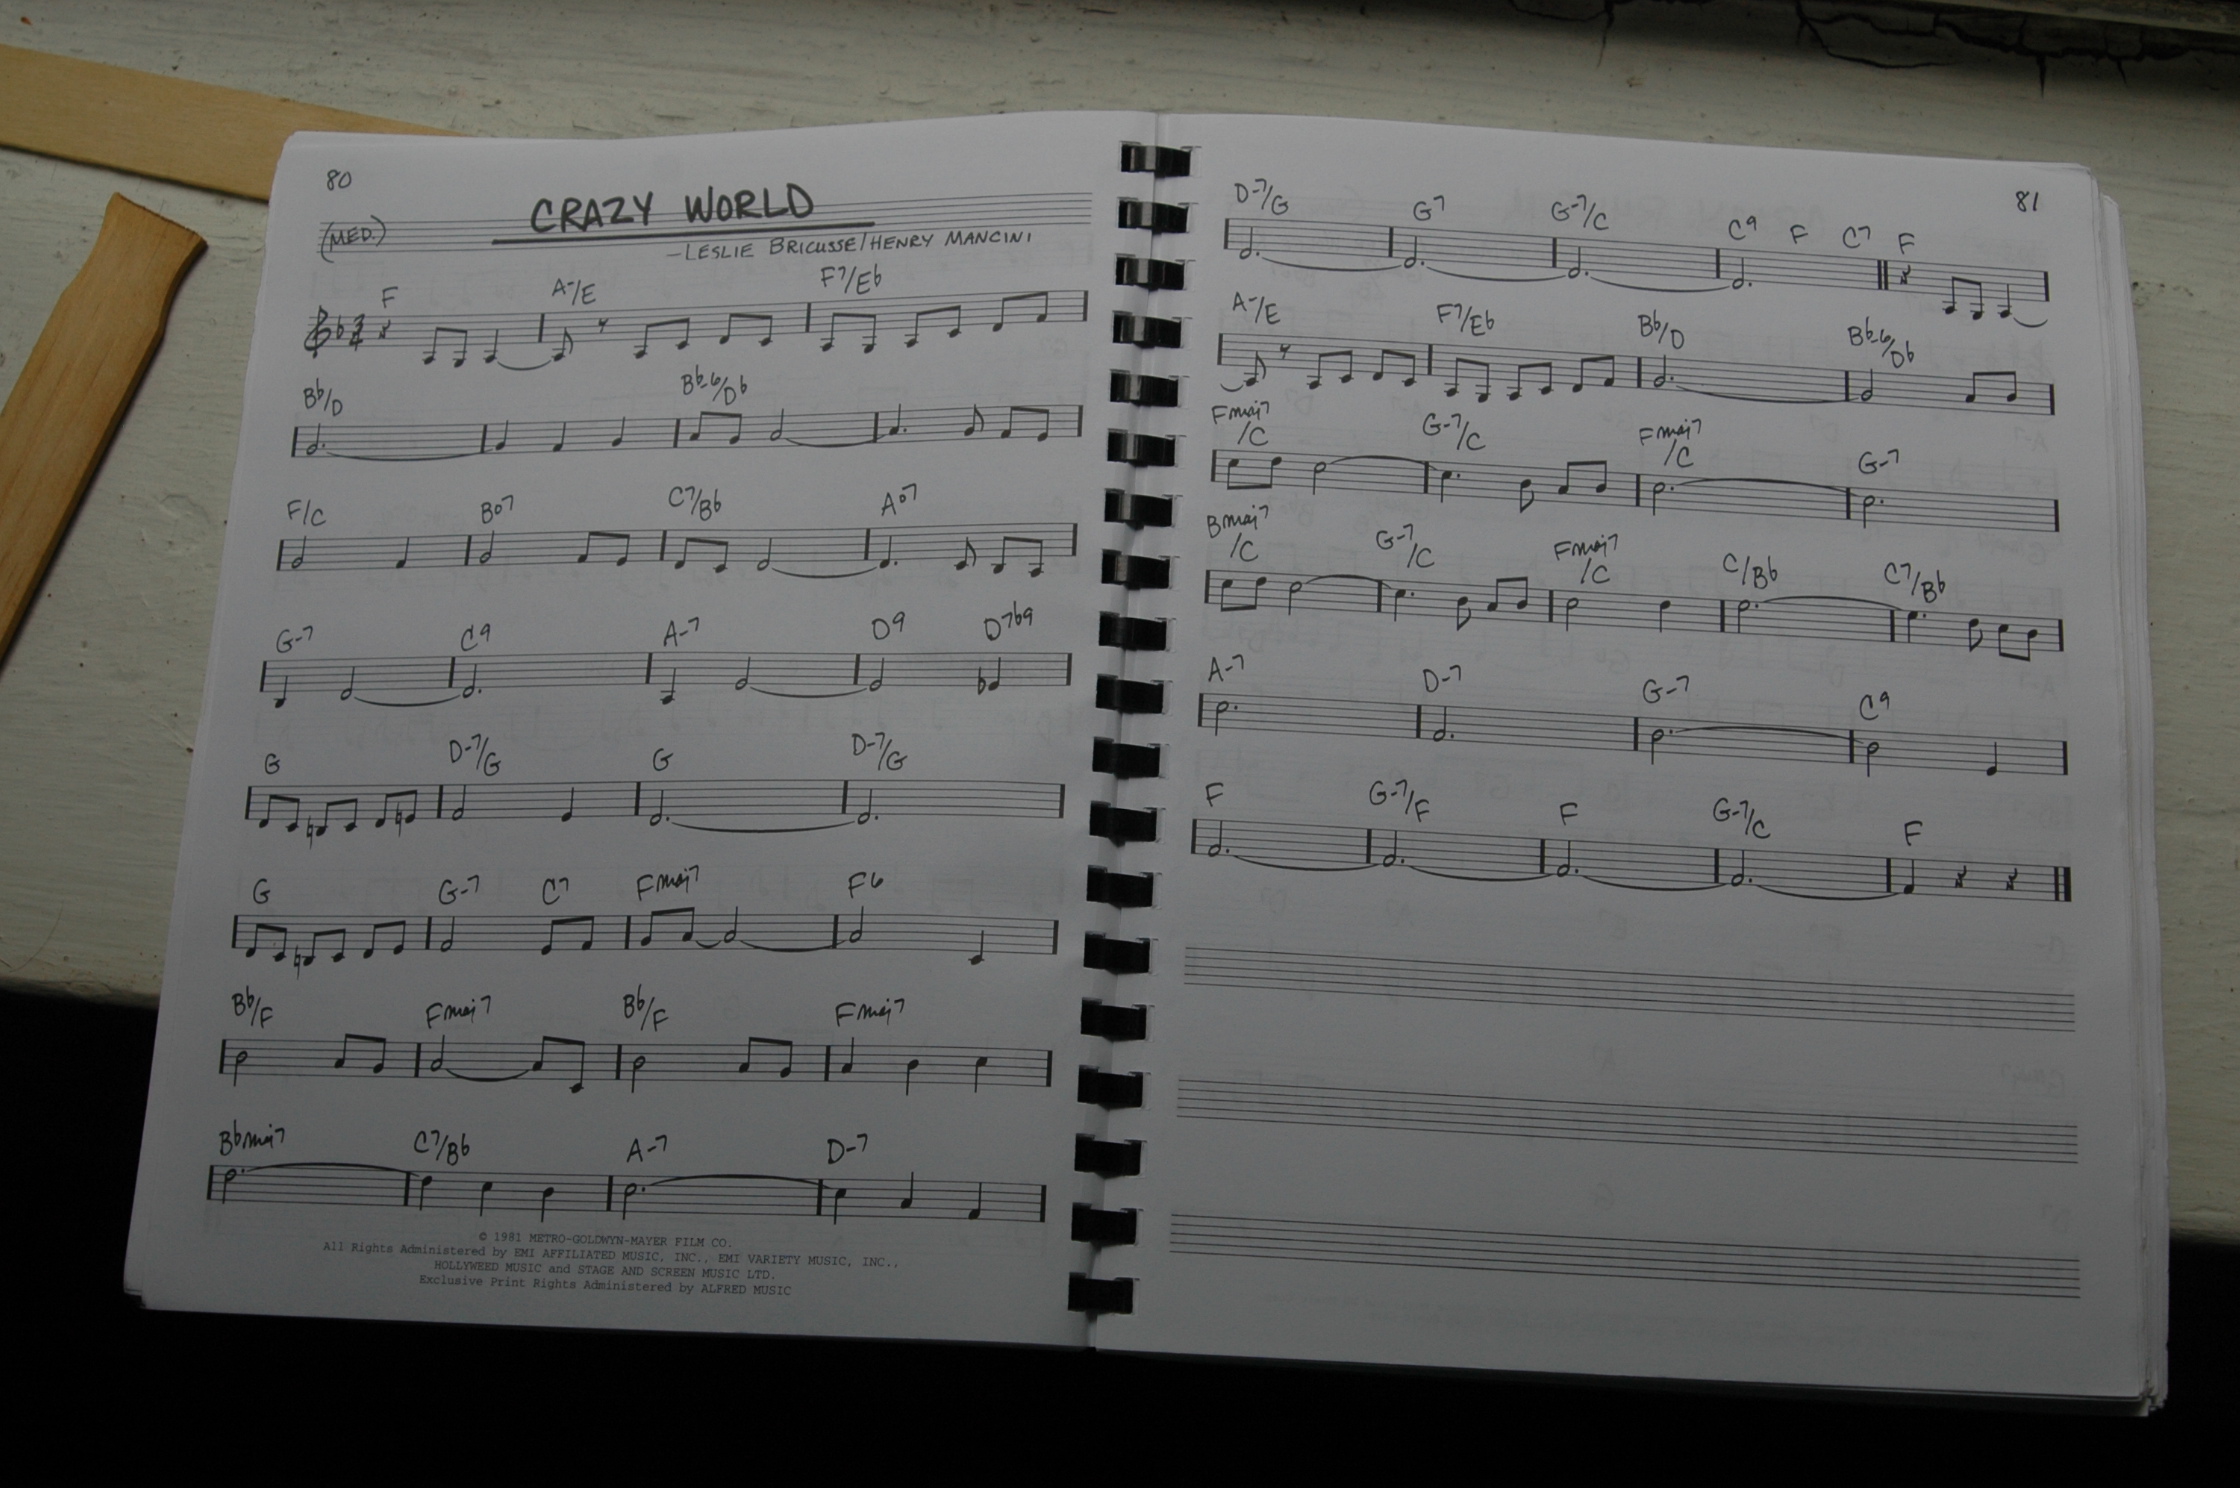 80
CRAZY WORLD
(MED.)
—LESLIE BRICUSSE/HENRY MANCINI
F A-/E F7/E♭
B♭/D B♭-6/D♭
F/C B°7 C7/B♭ A°7
G-7 C9 A-7 D9 D7♭9
G D-7/G G D-7/G
G G-7 C7 Fmaj7 F6
B♭/F Fmaj7 B♭/F Fmaj7
B♭maj7 C7/B♭ A-7 D-7
© 1981 METRO-GOLDWYN-MAYER FILM CO.
All Rights Administered by EMI AFFILIATED MUSIC, INC., EMI VARIETY MUSIC, INC.,
HOLLYWEED MUSIC and STAGE AND SCREEN MUSIC LTD.
Exclusive Print Rights Administered by ALFRED MUSIC
81
D-7/G G7 G-7/C C9 F C7 F
A-/E F7/E♭ B♭/D B♭-6/D♭
Fmaj7/C G-7/C Fmaj7/C G-7
Bmaj7/C G-7/C Fmaj7/C C/B♭ C7/B♭
A-7 D-7 G-7 C9
F G-7/F F G-7/C F